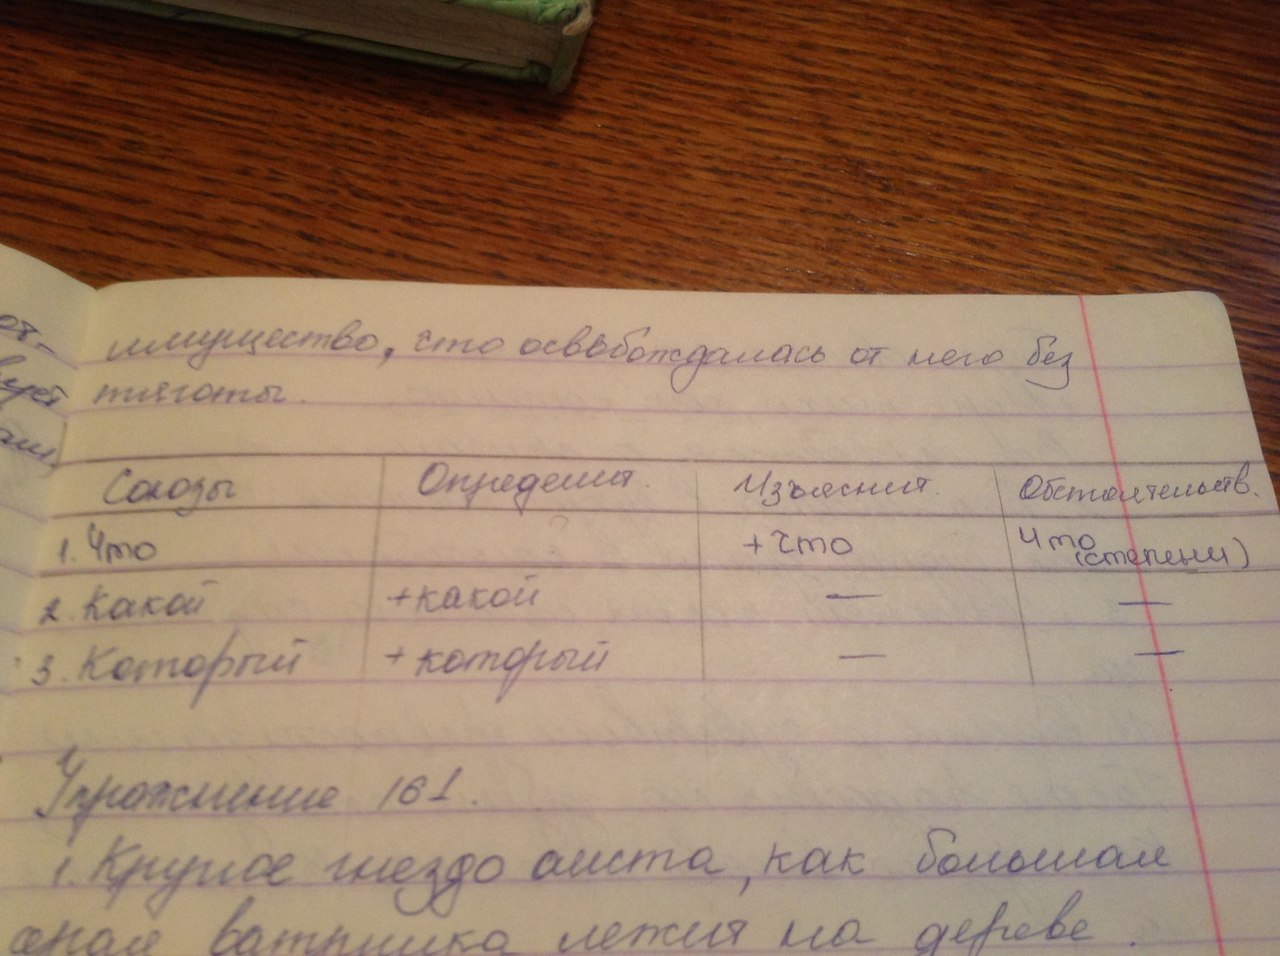 имущество, что освобождалась от него без
тяготы.
Союзы Определит. Изъяснит. Обстоятельств.
1. Что + что что (степени)
2. Какой + какой — —
3. Который + который — —
Упражнение 161.
1. Круглое гнездо аиста, как большая
ватрушка лежит на дереве.